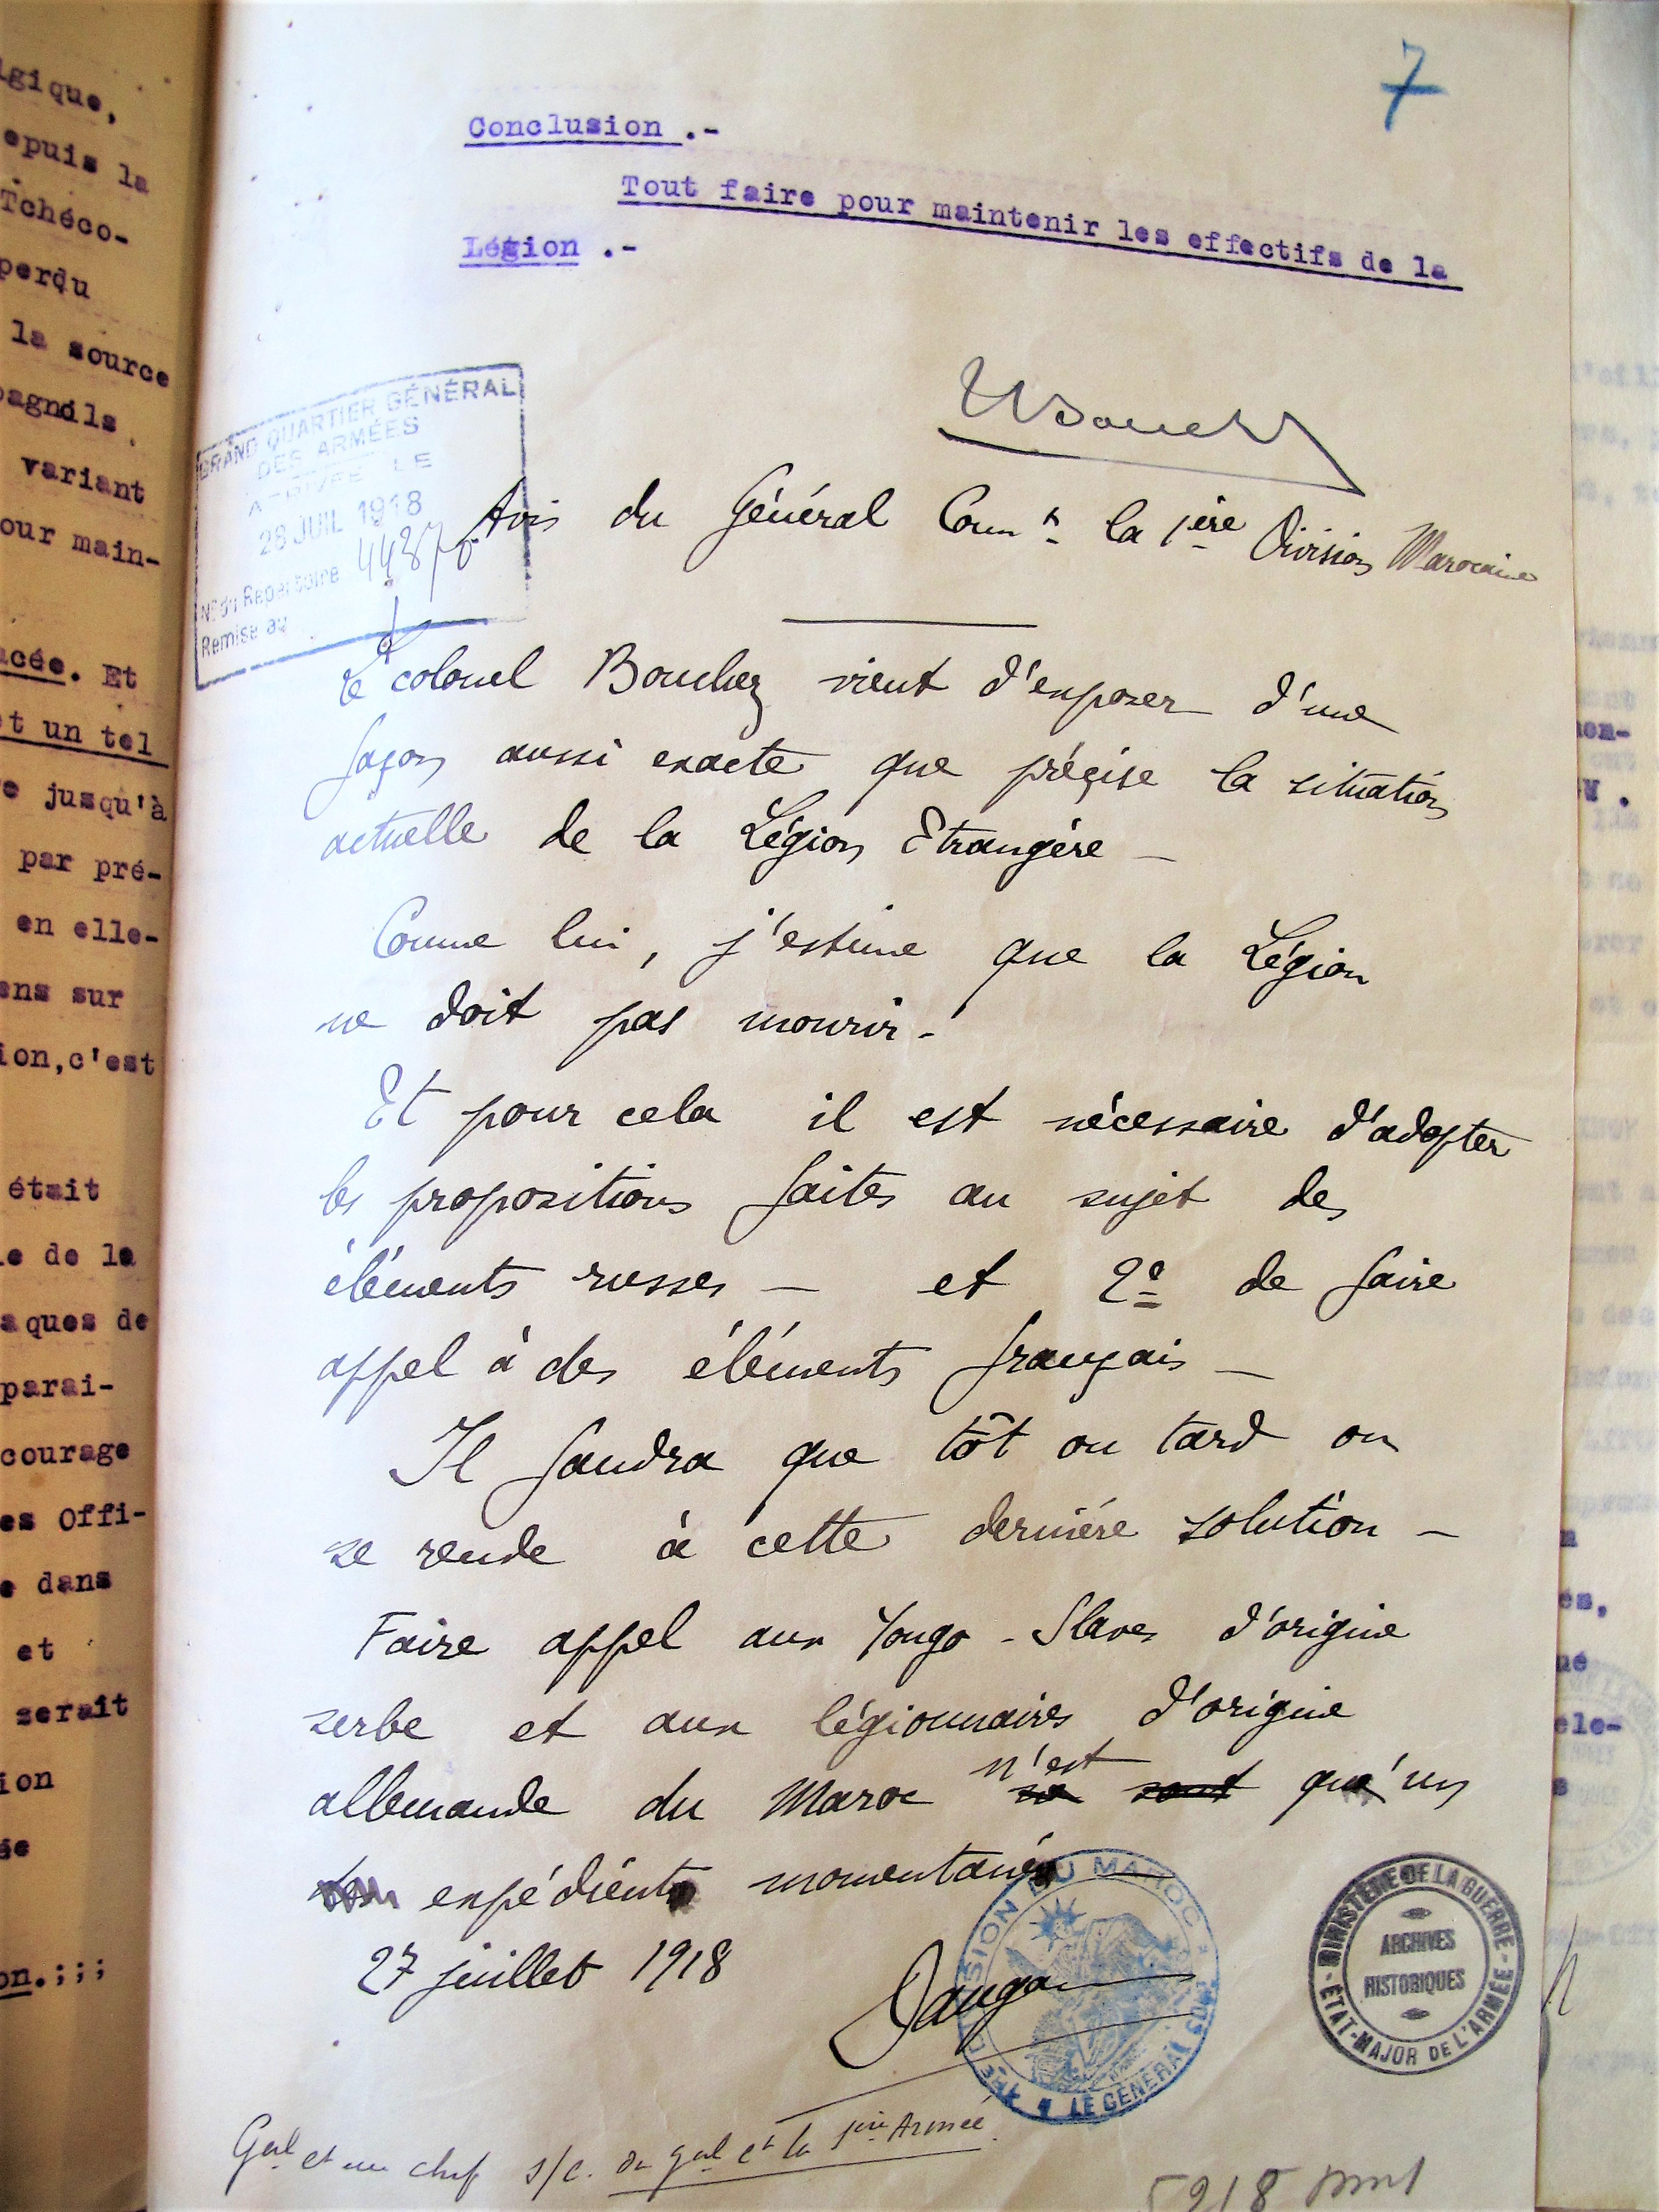 7
Conclusion .-
Tout faire pour maintenir les effectifs de la
Légion .-
GRAND QUARTIER GÉNÉRAL
DES ARMÉES
ARRIVÉE LE
28 JUIL 1918
N° du Repertoire
Remise au
Avis du Général Comt la 1ère Division Marocaine
Le colonel Bouchez vient d'exposer d'une
façon aussi exacte que précise la situation
actuelle de la Légion Etrangère —
Comme lui, j'estime que la Légion
ne doit pas mourir -
Et pour cela il est nécessaire d'adopter
les propositions faites au sujet des
éléments russes — et 2° de faire
appel à des éléments français —
Il faudra que tôt ou tard on
se rende à cette dernière solution —
Faire appel aux Yougo-Slaves d'origine
serbe et aux légionnaires d'origine
allemande du Maroc n'est qu'un
expédient momentané
27 juillet 1918
Daugan
1ÈRE DIVISION DU MAROC
LE GÉNÉRAL CDT
MINISTÈRE DE LA GUERRE
ARCHIVES
HISTORIQUES
ÉTAT-MAJOR DE L'ARMÉE
Gal et en chef s/c. du gal ct la 1ère Armée
lgique,
epuis la
Tchéco-
perdu
la source
pagnols.
variant
our main-
acée. Et
et un tel
e jusqu'à
par pré-
en elle-
ens sur
ion,c'est
était
le de la
aques de
parai-
courage
es Offi-
e dans
et
serait
ion
ée
on.;;;